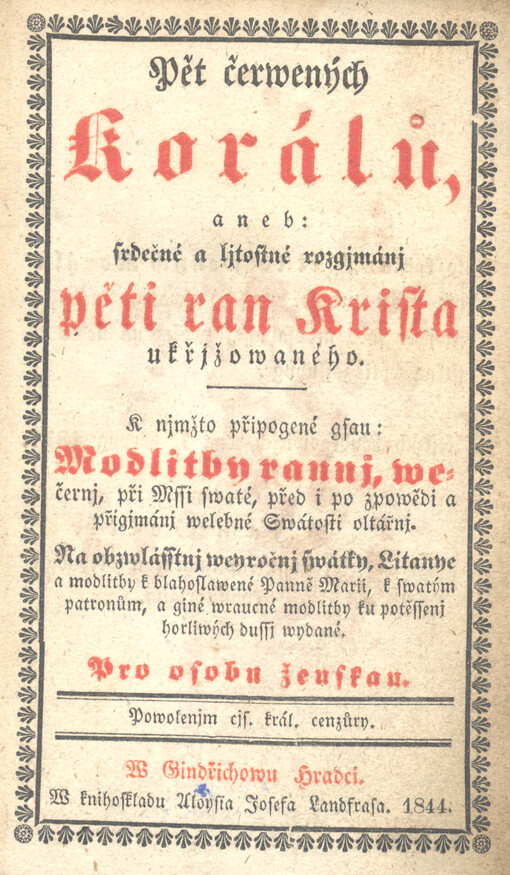 Pět čerwených
Korálů,
aneb:
srdečné a ljtostné rozgjmánj
pěti ran Krista
ukřjžowaného.
K njmžto připogené gsau:
Modlitby rannj, we-
černj, při Mssi swaté, před i po zpowědi a
přigjmánj welebné Swátosti oltářnj.
Na obzwlásstnj weyročnj swátky, Litanye
a modlitby k blahoslawené Panně Marii, k swatým
patronům, a giné wraucné modlitby ku potěssenj
horliwých dussj wydané.
Pro osobu ženskau.
Powolenjm cjs. král. cenzůry.
W Gindřichowu Hradci.
W knihoskladu Aloysia Josefa Landfrasa. 1844.